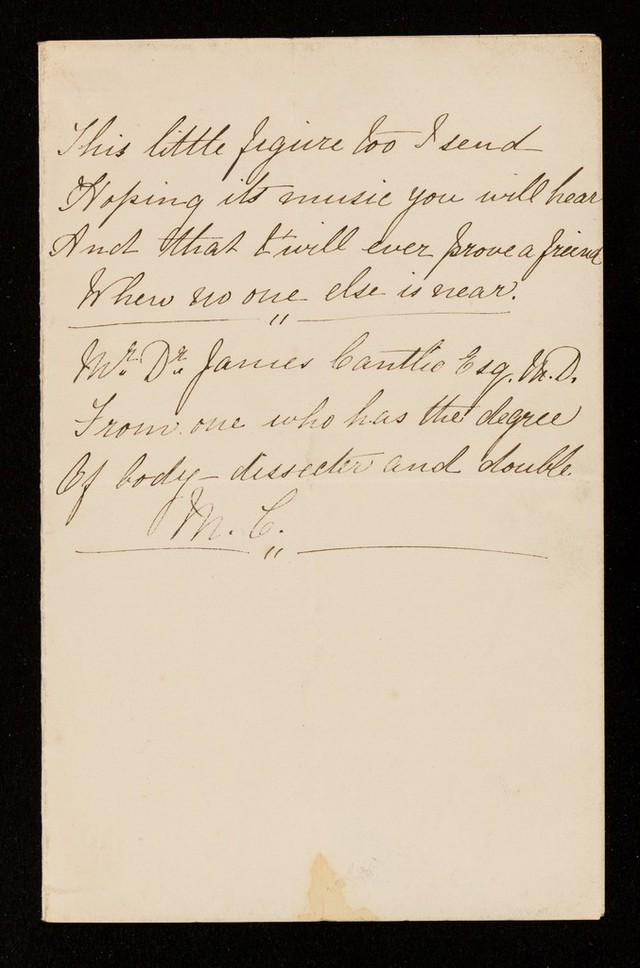 This little figure too I send
Hoping its music you will hear
And that t'will ever prove a freind
When no one else is near.
Mr. Dr. James Cantlie Esq. M.D.
From one who has the degree
Of body-dissecter and double
M. C.